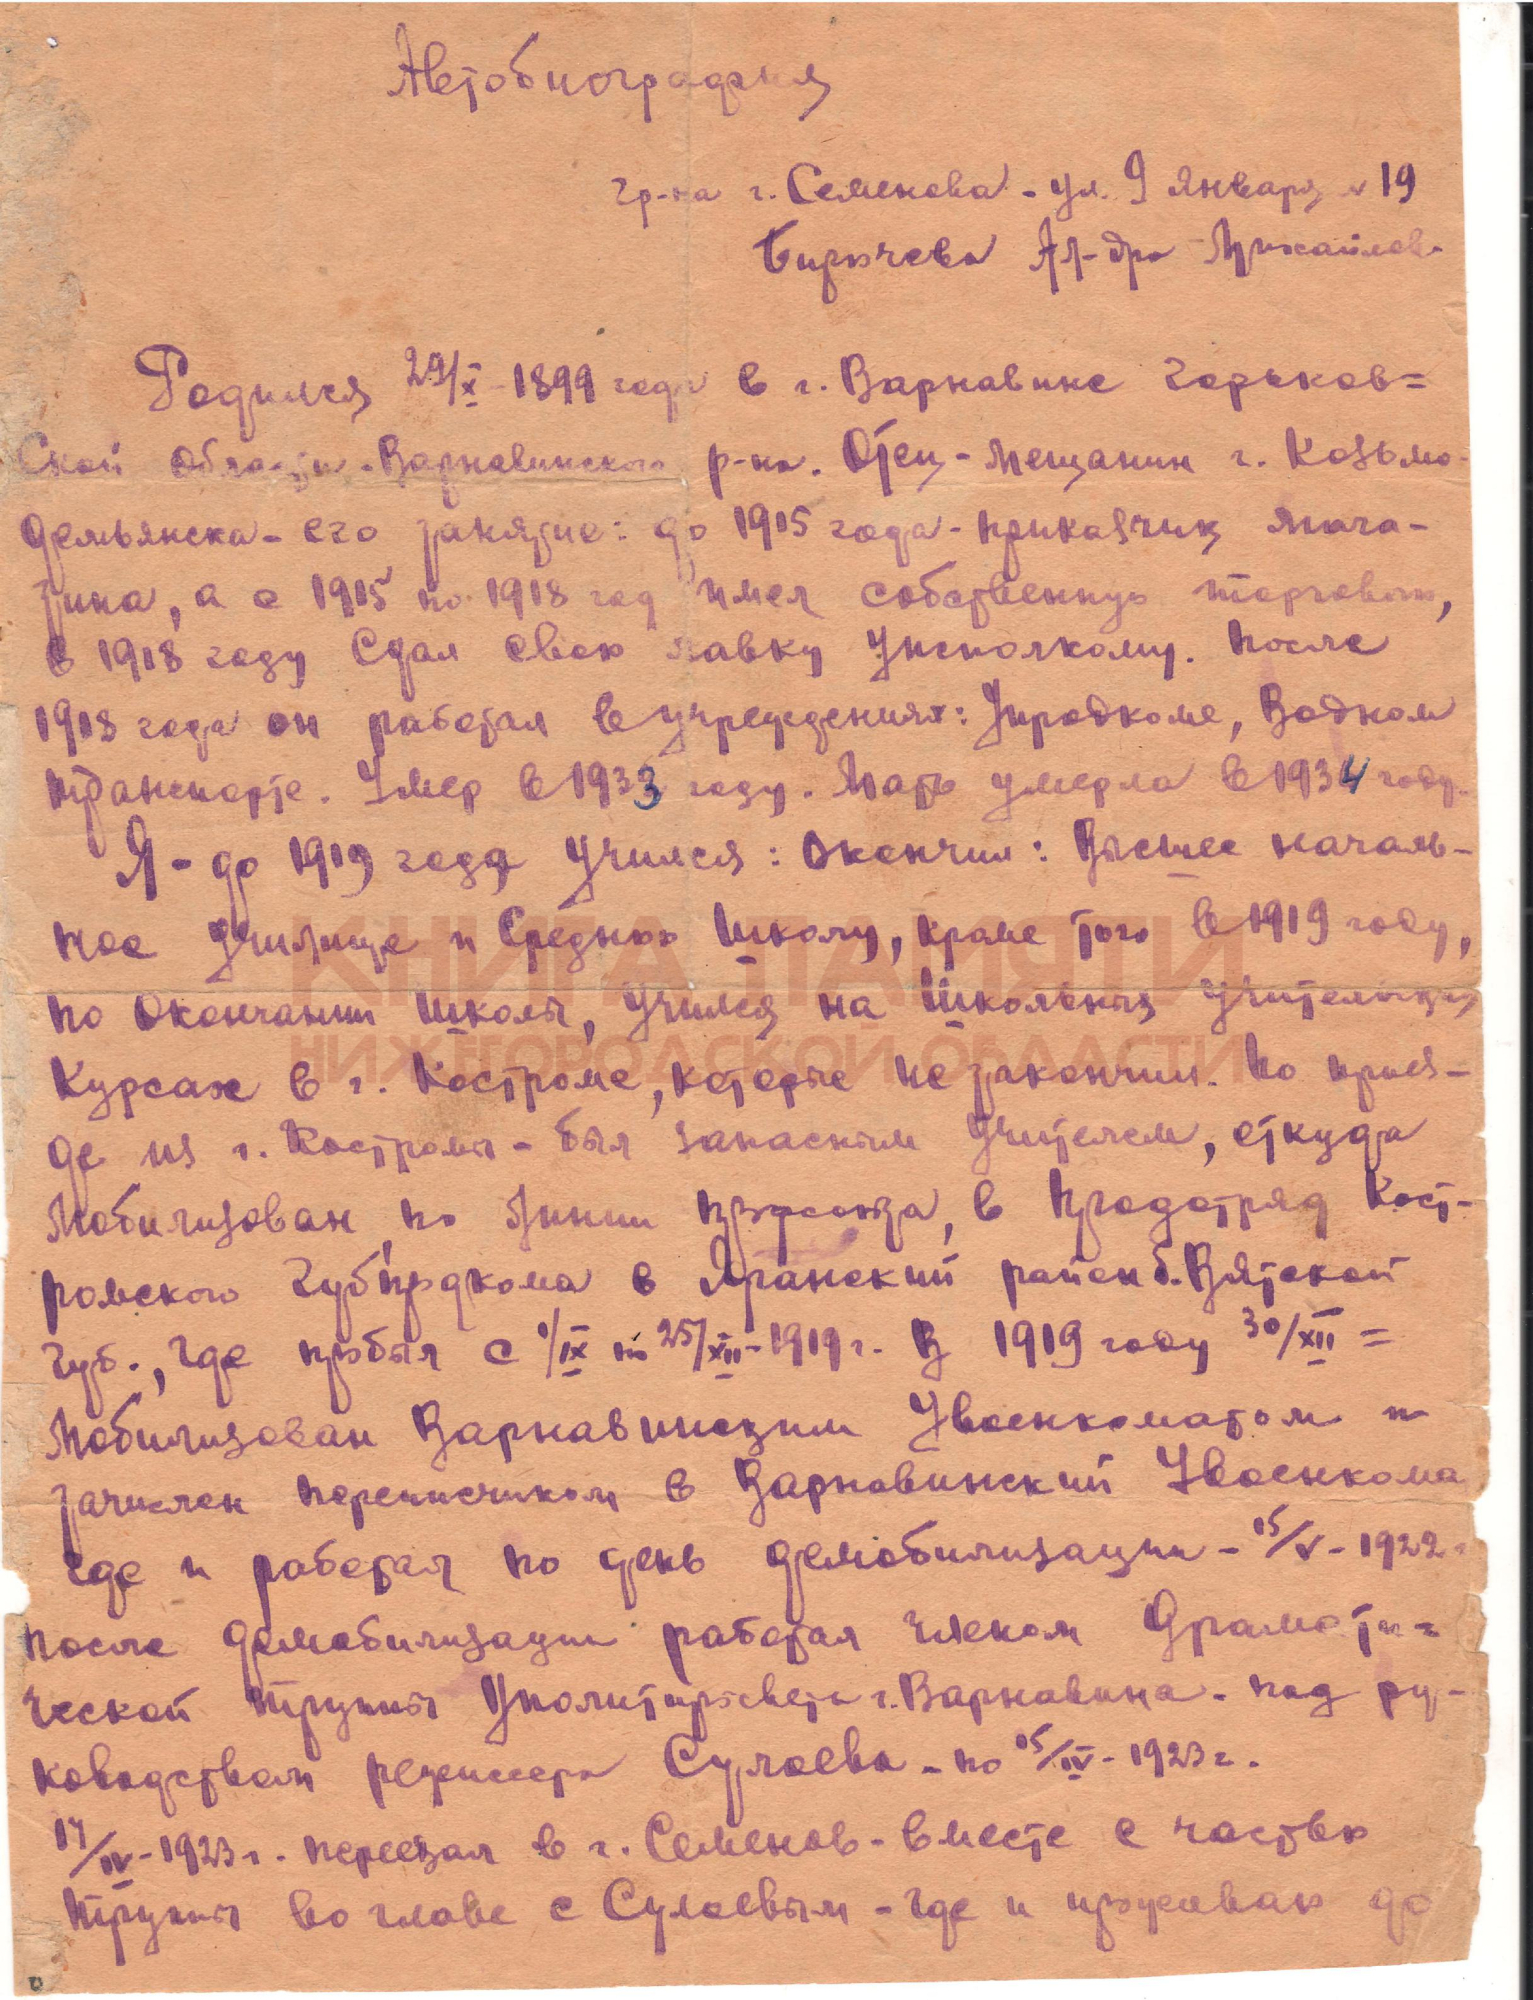 Автобиография
гр-на г. Семенова - ул. 9 января № 19
Бирючева Ал-дра Михайлов.
Родился 29/X - 1899 года в г. Варнавине Горьков=
ской области - Варнавинского р-на. Отец - мещанин г. Козьмо-
демьянска - его занятие: до 1915 года - приказчик мага-
зина, а с 1915 по 1918 год имел собственную торговлю,
в 1918 году сдал свою лавку Уисполкому. После
1918 года он работал в учреждениях: Упродкоме, Водном
транспорте. Умер в 1933 году. Мать умерла в 1934 году.
Я - до 1919 года учился: окончил: Высшее началь-
ное училище и Среднюю школу, кроме того в 1919 году,
по окончании школы, учился на школьных учительских
курсах в г. Костроме, которые не закончил. По приез-
де из г. Костромы - был запасным учителем, откуда
мобилизован, по линии профсоюза, в продотряд Кост-
ромского Губпродкома в Яранский район б. Вятской
губ., где пробыл с 1/IX по 25/XII - 1919 г. В 1919 году 30/XII =
мобилизован Варнавинским Увоенкоматом и
зачислен переписчиком в Варнавинский Увоенкома
где и работал по день демобилизации - 15/V - 1922 г
После демобилизации работал членом Драмати=
ческой труппы Уполитпросвета г. Варнавина - под ру-
ководством режиссера Сулоева - по 15/IV - 1923 г.
17/IV - 1923 г. переехал в г. Семенов - вместе с частью
труппы во главе с Сулоевым - где и проживаю до
КНИГА ПАМЯТИ
НИЖЕГОРОДСКОЙ ОБЛАСТИ